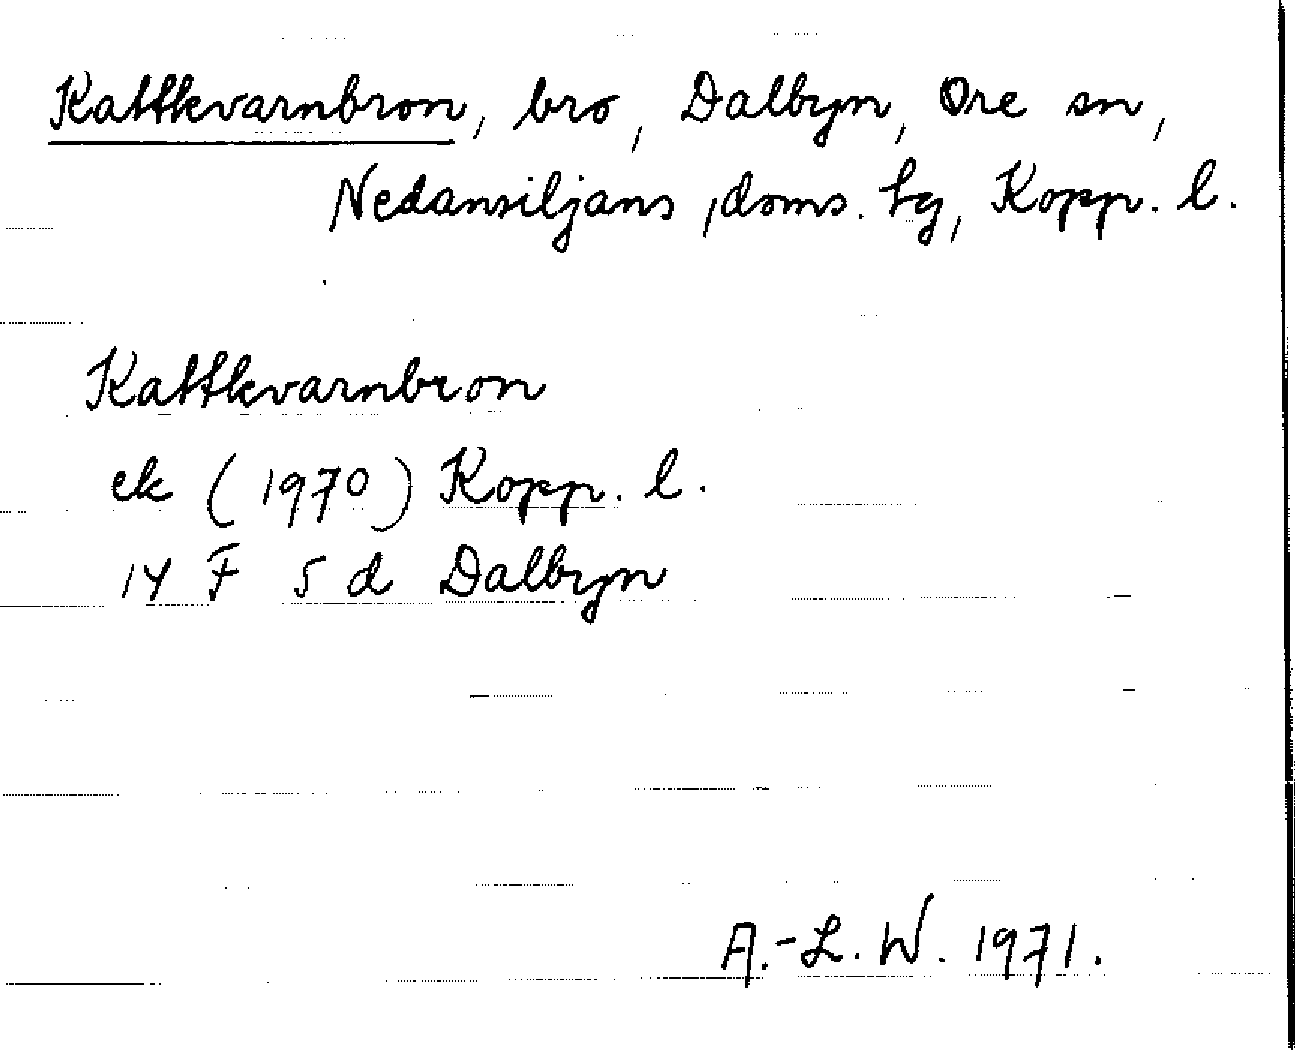 Kattkvarnbron, bro, Dalbyn, Ore sn,
Nedansiljans, doms. hg, Kopp. l.
Kattkvarnbron
ek (1970) Kopp. l.
14 F 5 d Dalbyn
A.-L. W. 1971.